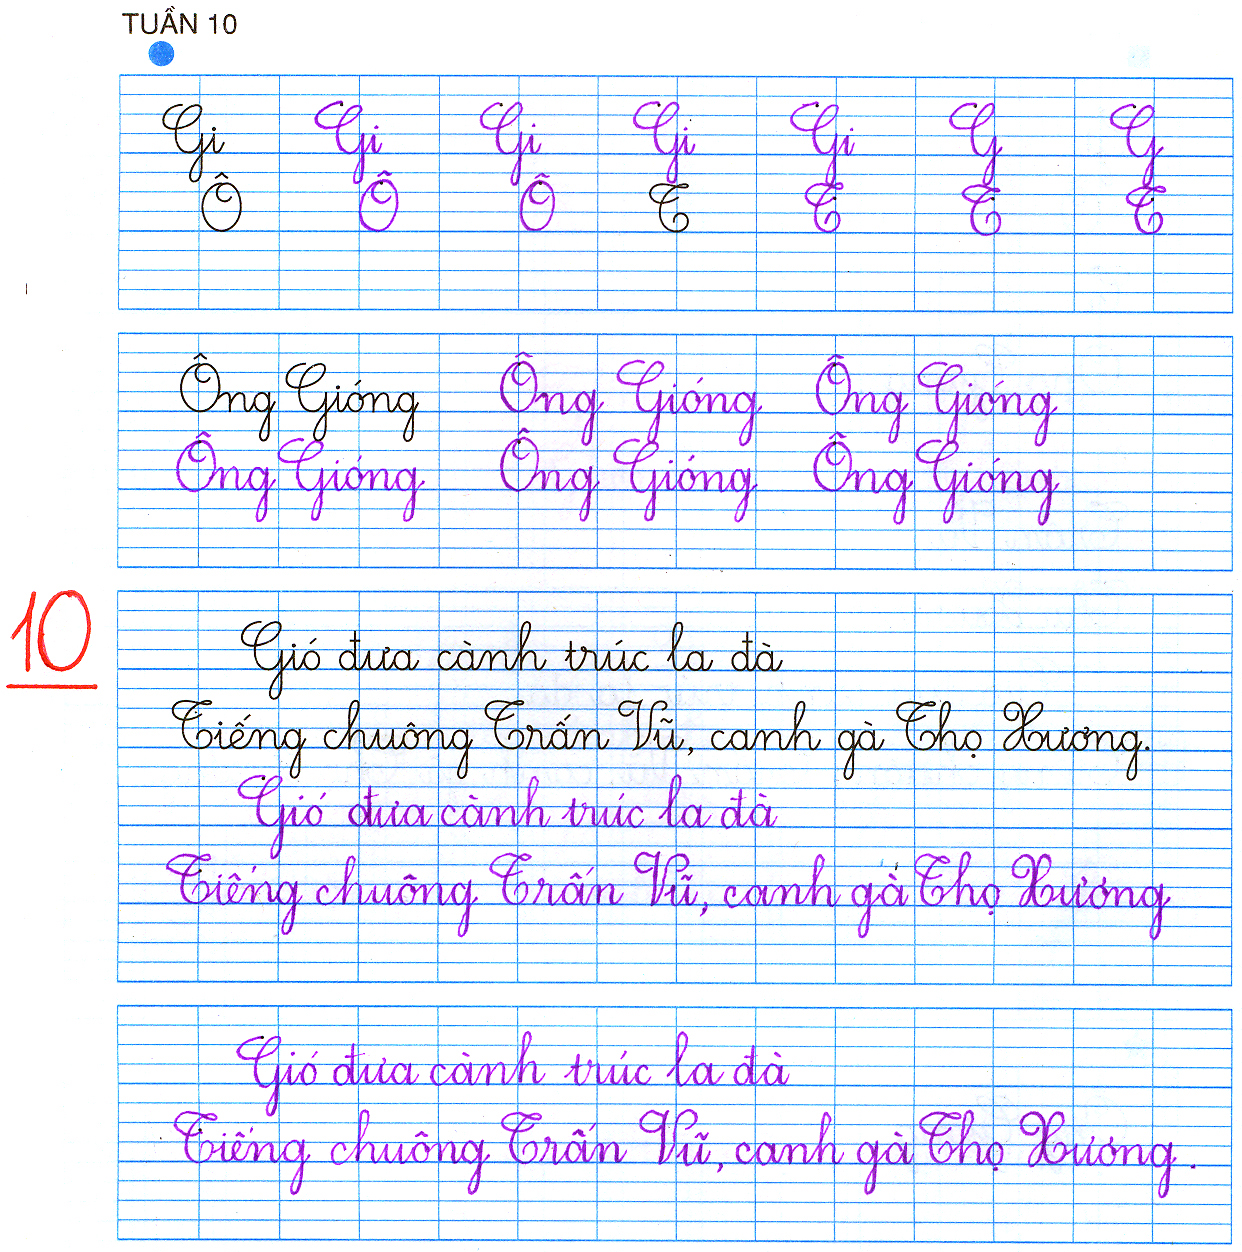 TUẦN 10
Gi Gi Gi Gi Gi G G
Ô Ô Ô T T T T
Ông Gióng Ông Gióng Ông Gióng
Ông Gióng Ông Gióng Ông Gióng
10
Gió đưa cành trúc la đà
Tiếng chuông Trấn Vũ, canh gà Thọ Xương.
Gió đưa cành trúc la đà
Tiếng chuông Trấn Vũ, canh gà Thọ Xương
Gió đưa cành trúc la đà
Tiếng chuông Trấn Vũ, canh gà Thọ Xương.